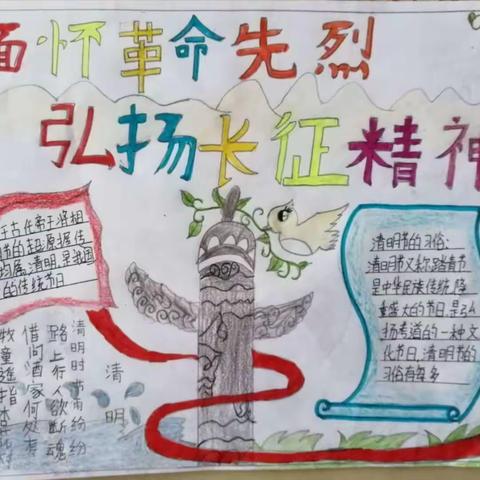 缅怀革命先烈
弘扬长征精神
于古代帝王将相
节的起源据传
均属清明是我国
的传统节日
清明节的习俗:
清明节又称踏青节
是中华民族传统隆
重盛大的节日是弘
扬孝道的一种文
化节日,清明节的
习俗有每多
清明
清明时节雨纷纷
路上行人欲断魂
借问酒家何处有
牧童遥指杏花